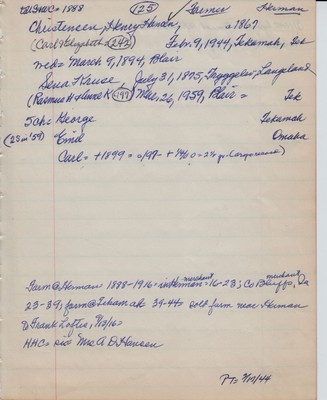 = 1888 (125) ✓ Farmer Herman
Christensen, Henry Hansen, b. 1867
(Carl & Elizabeth (242) Febr. 9, 1944, Tekamah, Tek
wed = March 9, 1894, Blair
Sena Kruse, July 31, 1875, Langeland
(Rasmus H & Anne K (199) Mar. 26, 1959, Blair = Tek
5 ch = George Tekamah
(2 S in '59) Emil Omaha
Carl = +1899 =
Farm @ Herman 1888-1916 = in Herman = merchant 16-23; Co Bluffs, Ia merchant
23-39; farm @ Tekamah 39-44 = sold farm near Herman
to Frank Loftis,
HHC = sis Mrs A D Hansen
PT= 2/10/44